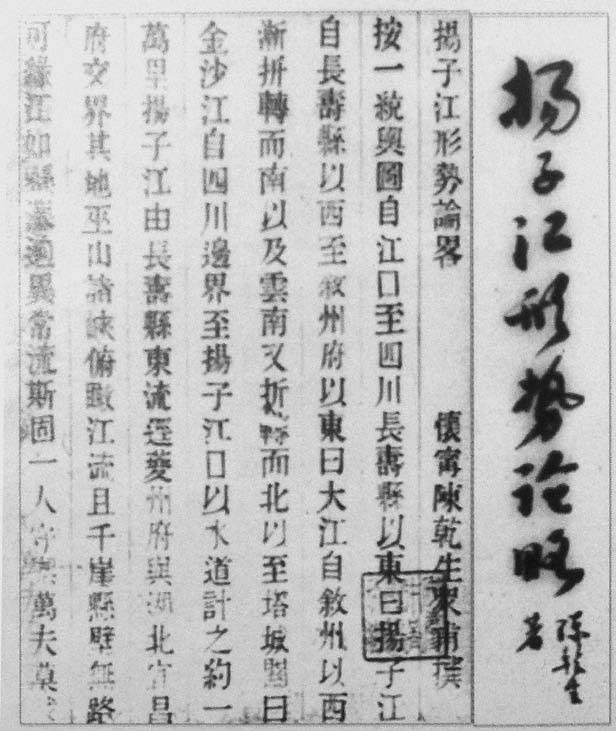 揚子江形勢論略
陳乾生
著
揚子江形勢論畧 懷甯陳乾生衆甫撰
按一統輿圖自江口至四川長壽縣以東曰揚子江
自長壽縣以西至敘州府以東曰大江自敘州以西
漸折轉而南以及雲南又折而北以至塔城關曰
金沙江自四川邊界至揚子江口以水道計之約一
萬里揚子江由長壽縣東流逕夔州府與湖北宜昌
府交界其地巫山諸峽俯瞰江流且千崖縣壁無路
可緣江如縣瀑 異常流斯固一人守 萬夫莫